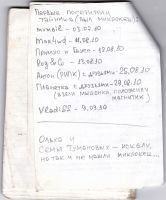 Первые посетители
тайника (был микрокеш):
mumbir - 03.08.10
Max4wd - 11.08.10
Примко и Газен - 12.08.10
Rog & Co - 13.08.10
Антон (РИПК) с друзьями - 25.08.10
Планетка с друзьями - 29.08.10
(взяли мышонка, положили
магнитик)
Vladi55 - 9.09.10
Ольха и
Семья Тумановых - искали,
но так и не нашли микрокеш...